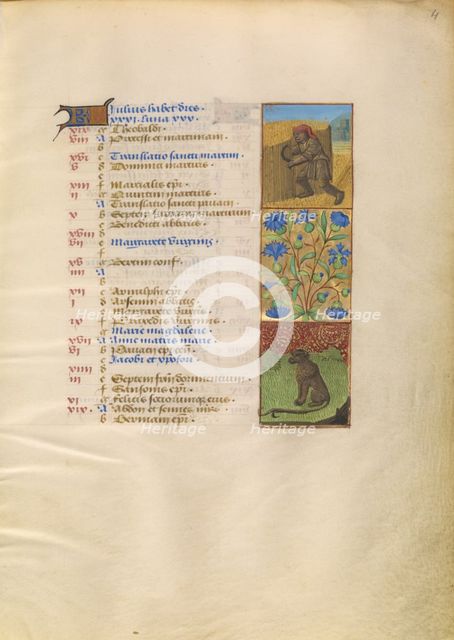 4
Julius habet dies
xxxi. luna xxx.
xix g Theobaldi.
viii A Processi et martiniani.
b
xvi c Translatio sancti martini.
v d Dominici martiris
e
xiii f Martialis epi.
ii g Quintini martiris
A Translatio sancti
x b Septem fratrum martirum
c Benedicti abbatis.
xviii d
vii e Margarete virginis.
f
xv g conf.
iiii A
b
xii c Arnulphi epi.
i d Arsenii abbatis
e Margarete virginis
ix f Praxedis virginis
g Marie magdalene
xvii A Anne matris marie
vi b
c Jacobi et xpofori
xiiii d
iii e Septem fratrum dormientium
f Sansonis epi.
xi g Felicis sociorumque eius
xix. A Abdon et sennes mr.
b Germani epi.
Heritage
Heritage
Heritage
Heritage
Heritage
Heritage